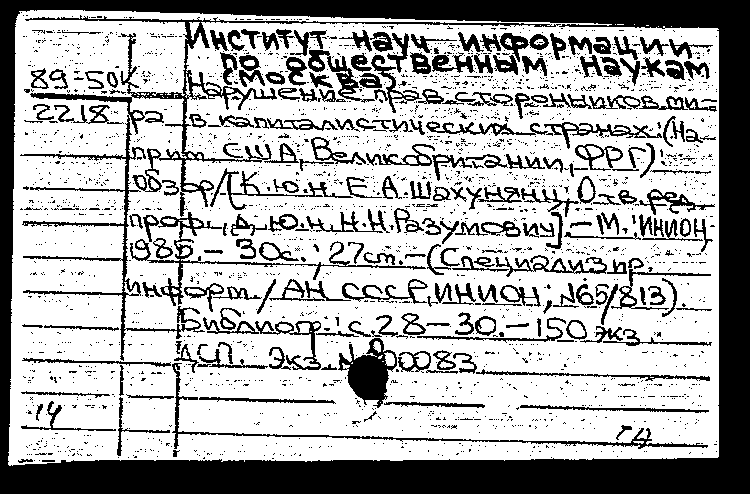 Институт науч. информации
по общественным наукам
(Москва).
89-50к Нарушение прав сторонников ми-
2218 ра в капиталистических странах: (На
прим. США, Великобритании, ФРГ):
обзор/[К.ю.н. Е.А.Шахунянц; Отв. ред.
проф., д.ю.н. Н.Н.Разумович].—М.:ИНИОН,
1985.— 30с.; 27см.—(Специализ пр.
информ./АН СССР, ИНИОН; №65/813).
Библиогр.: с.28—30.—150 экз.
ДСП. Экз. №000083
14